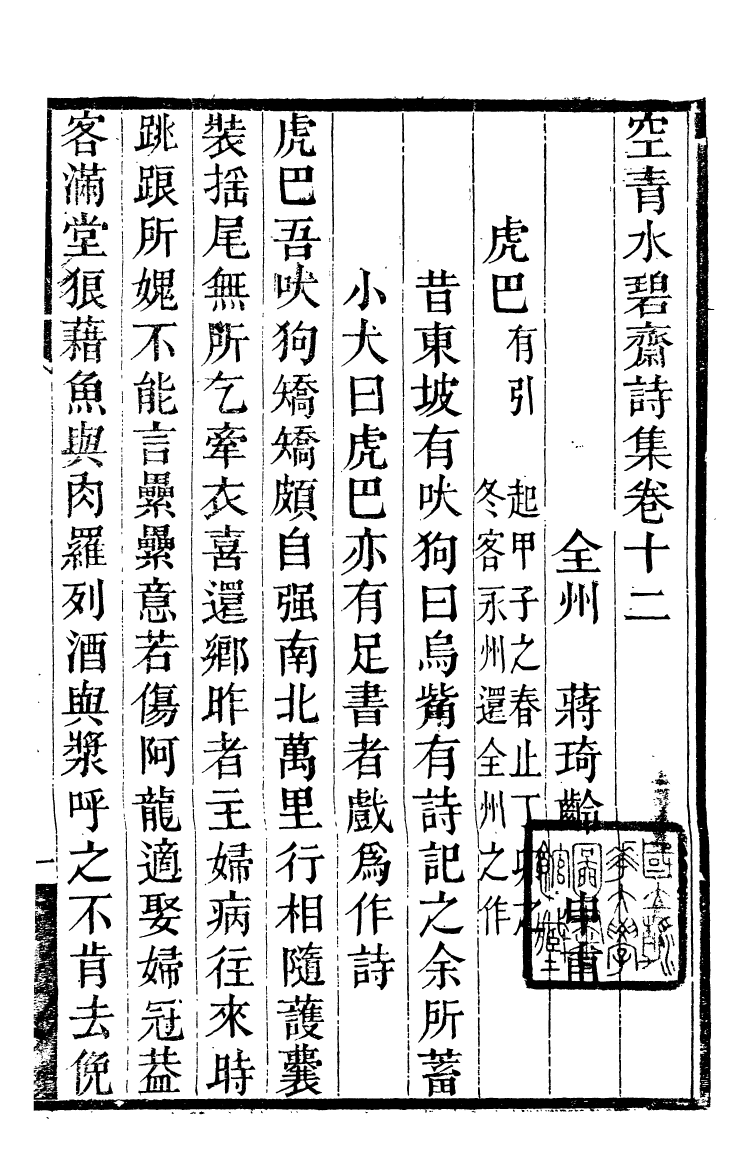 空青水碧齋詩集卷十二
全州　蔣琦齡　申甫
虎巴有引　起甲子之春止丁卯之
冬客永州還全州之作
昔東坡有吠狗曰烏觜有詩記之余所蓄
小犬曰虎巴亦有足書者戲爲作詩
虎巴吾吠狗矯矯頗自强南北萬里行相隨護囊
裝揺尾無所乞牽衣喜還鄉昨者主婦病往來時
跳踉所媿不能言纍纍意若傷阿龍適娶婦冠葢
客滿堂狼藉魚與肉羅列酒與漿呼之不肯去俛